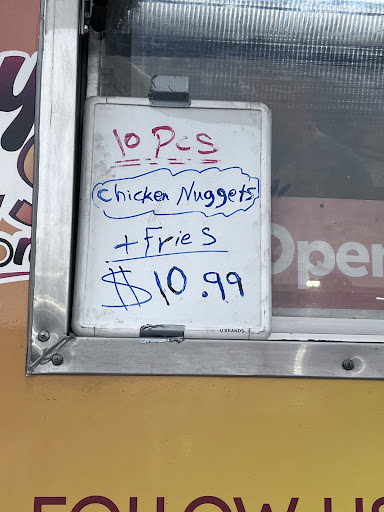 10 Pcs
Chicken Nuggets
+ Fries
$10.99
U BRANDS
Open
FOLLOW US